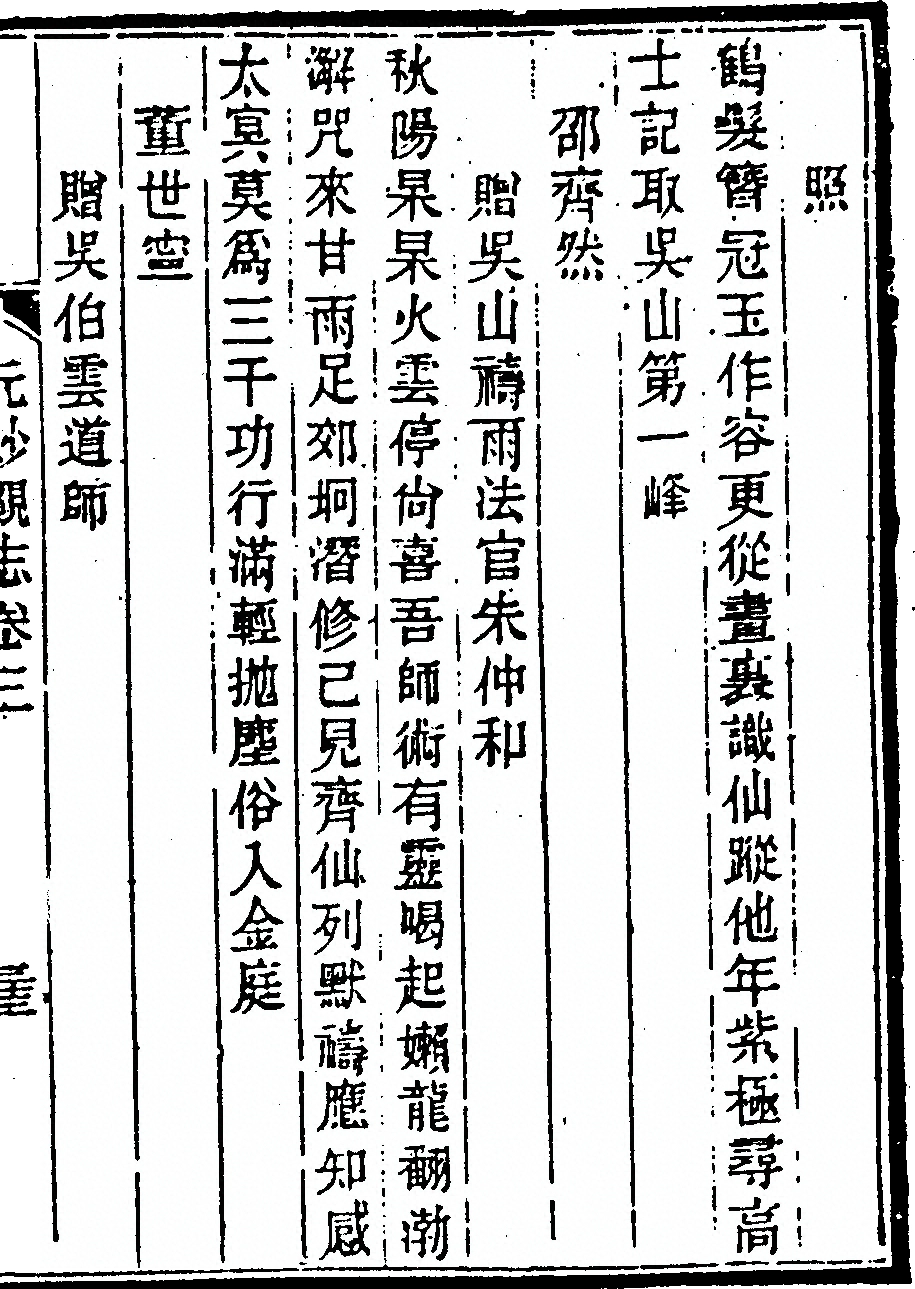 照
鶴髮簪冠玉作容更從畫裏識仙蹤他年紫極尋高
士記取吳山第一峰
邵齊然
贈吳山禱雨法官朱仲和
秋陽杲杲火雲停尙喜吾師術有靈喝起嬾龍翻渤
澥咒來甘雨足郊坰潛修已見齊仙列默禱應知感
太冥莫爲三千功行滿輕拋塵俗入金庭
董世寧
贈吳伯雲道師
元妙觀志卷三